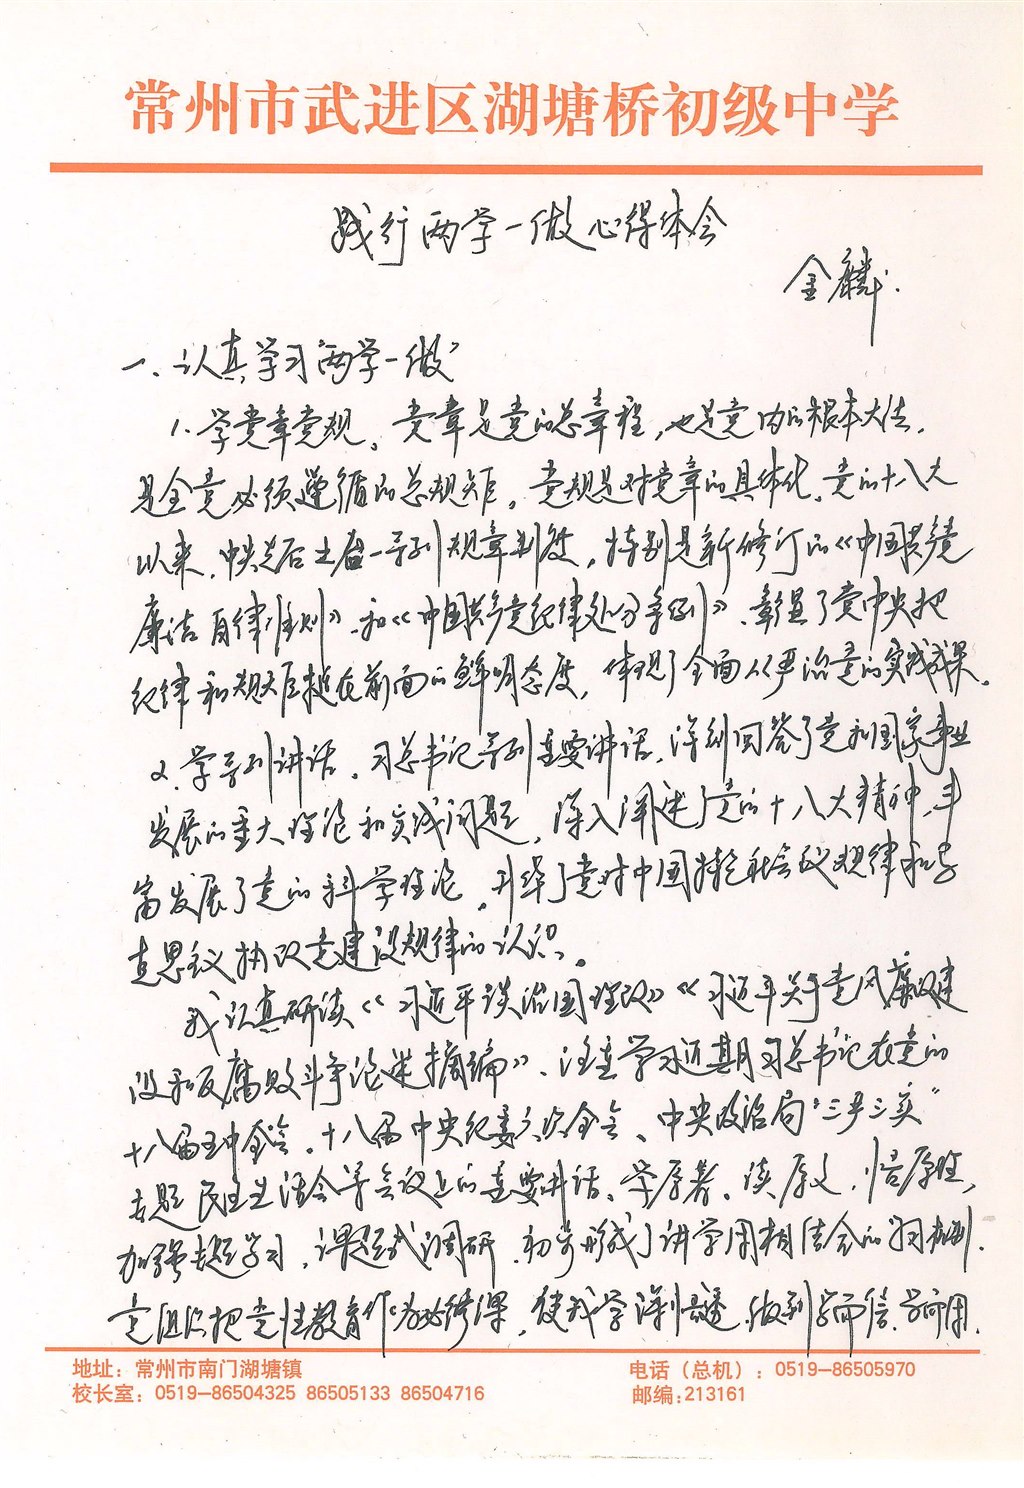 常州市武进区湖塘桥初级中学
践行两学一做心得体会
金麟.
一、认真学习"两学一做"
1.学党章党规。党章是党的总章程,也是党内的根本大法,
是全党必须遵循的总规矩。党规是对党章的具体化,党的十八大
以来,中央先后出台一系列规章制度,特别是新修订的《中国共产党
廉洁自律准则》、和《中国共产党纪律处分条例》,彰显了党中央把
纪律和规矩挺在前面的鲜明态度,体现了全面从严治党的实践成果。
2.学系列讲话。习总书记系列重要讲话,深刻回答了党和国家事业
发展的重大理论和实践问题,深入阐述了党的十八大精神,丰
富发展了党的科学理论,升华了党对中国特色社会主义规律和
主义执政党建设规律的认识。
我认真研读《习近平谈治国理政》《习近平关于党风廉政建
设和反腐败斗争论述摘编》、注重学习近期习总书记在党的
十八届五中全会、十八届中央纪委六次全会、中央政治局"三严三实"
专题民主生活会等会议上的重要讲话、学原著、读原文,悟原理,
加强专题学习,课题式调研,初步形成了讲学用相结合的学习机制.
把党性教育作为必修课,使我学深悟透,做到学而信、学而用.
地址:常州市南门湖塘镇
电话(总机):0519-86505970
校长室:0519-86504325 86505133 86504716
邮编:213161